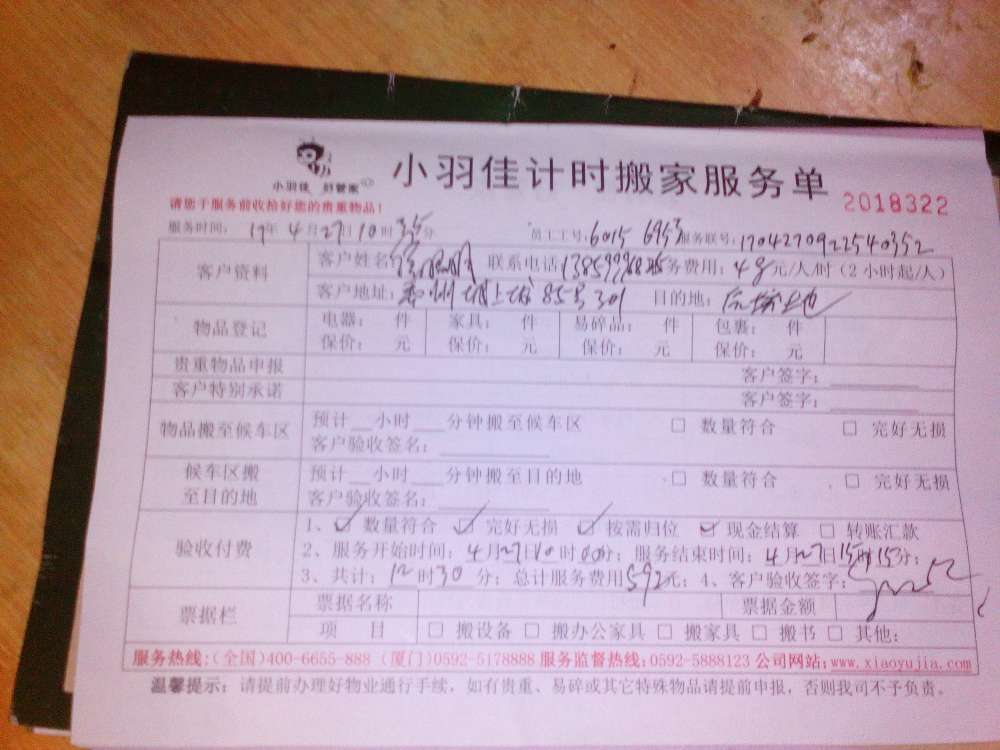 小羽佳 好管家
小羽佳计时搬家服务单
2018322
请您于服务前收拾好您的贵重物品!
服务时间: 17年4月27日10时35分 员工工号:6015 6953 服务联号:1704270922540352
客户资料
客户姓名 联系电话 服务费用:48元/人/时(2小时起/人)
客户地址: 85号301 目的地:
物品登记
电器: 件 家具: 件 易碎品: 件 包裹: 件
保价: 元 保价: 元 保价: 元 保价: 元
贵重物品申报 客户签字:
客户特别承诺 客户签字:
物品搬至候车区
预计__小时___分钟搬至候车区 □ 数量符合 □ 完好无损
客户验收签名:
候车区搬至目的地
预计__小时___分钟搬至目的地 □ 数量符合 □ 完好无损
客户验收签名:
验收付费
1、☑ 数量符合 ☑ 完好无损 ☑ 按需归位 ☑ 现金结算 □ 转账汇款
2、服务开始时间:4月27日10时00分;服务结束时间:4月27日15时15分;
3、共计:12时30分;总计服务费用592元;4、客户验收签字:
票据栏
票据名称 票据金额
项 目 □ 搬设备 □ 搬办公家具 □ 搬家具 □ 搬书 □ 其他:
服务热线:(全国)400-6655-888 (厦门)0592-5178888 服务监督热线:0592-5888123 公司网站:www.xiaoyujia.com
温馨提示: 请提前办理好物业通行手续,如有贵重、易碎或其它特殊物品请提前申报,否则我司不予负责。